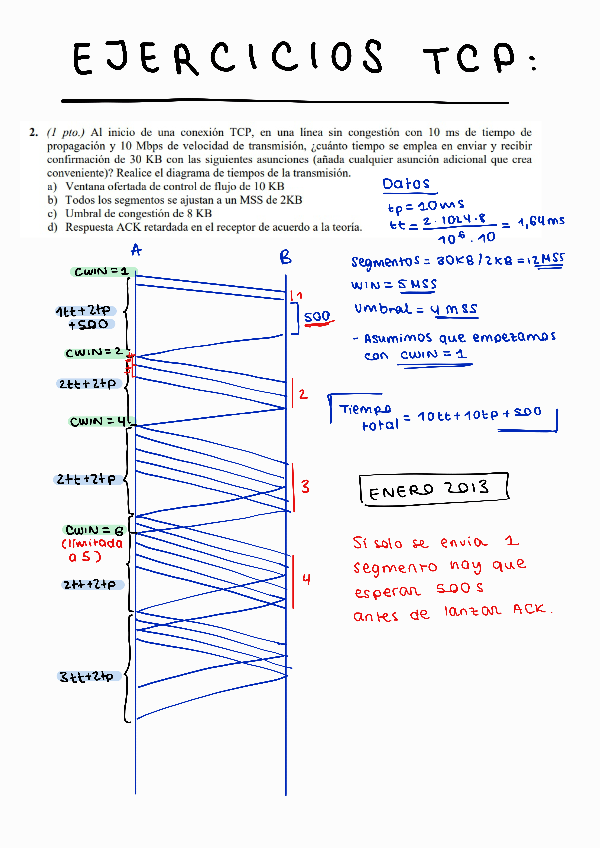 EJERCICIOS TCP:
2. (1 pto.) Al inicio de una conexión TCP, en una línea sin congestión con 10 ms de tiempo de
propagación y 10 Mbps de velocidad de transmisión, ¿cuánto tiempo se emplea en enviar y recibir
confirmación de 30 KB con las siguientes asunciones (añada cualquier asunción adicional que crea
conveniente)? Realice el diagrama de tiempos de la transmisión.
a) Ventana ofertada de control de flujo de 10 KB
b) Todos los segmentos se ajustan a un MSS de 2KB
c) Umbral de congestión de 8 KB
d) Respuesta ACK retardada en el receptor de acuerdo a la teoría.
Datos
tp = 10ms
tt = 2 · 1024 · 8 / 10⁶ · 10 = 1,64ms
segmentos = 30KB / 2KB = 12 MSS
WIN = 5 MSS
Umbral = 4 MSS
- Asumimos que empezamos
con CWIN = 1
Tiempo
total = 10tt + 10tp + 500
ENERO 2013
Si solo se envía 1
segmento hay que
esperar 500s
antes de lanzar ACK.
A
B
CWIN = 1
1
1tt + 2tp
+ 500
500
CWIN = 2
2tt + 2tp
2
CWIN = 4
2tt + 2tp
3
CWIN = 6
(limitada
a 5)
4
2tt + 2tp
3tt + 2tp